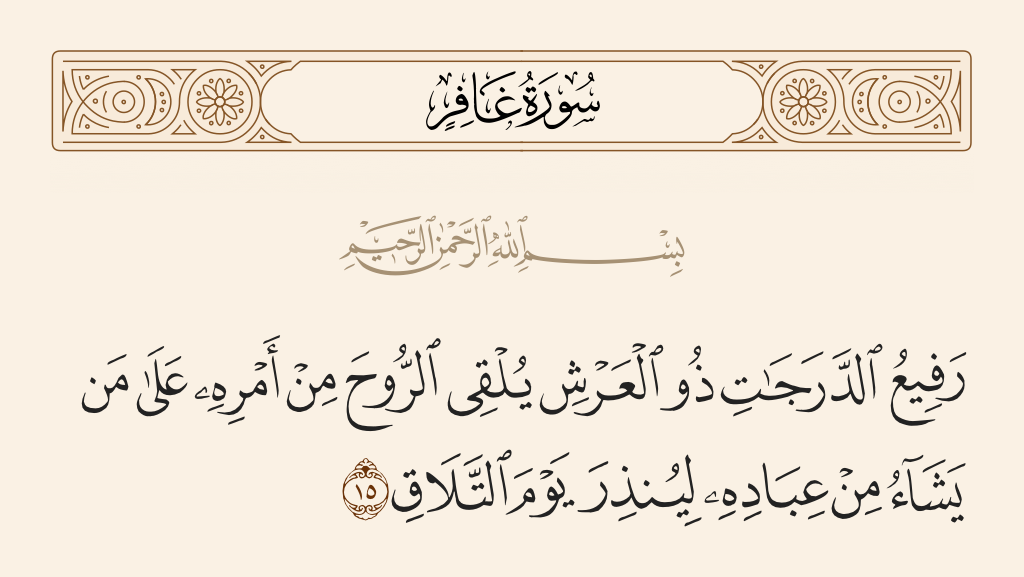 سُورَةُ غَافِرٍ
بِسْمِ ٱللَّهِ ٱلرَّحْمَٰنِ ٱلرَّحِيمِ
رَفِيعُ ٱلدَّرَجَٰتِ ذُو ٱلْعَرْشِ يُلْقِى ٱلرُّوحَ مِنْ أَمْرِهِۦ عَلَىٰ مَن
يَشَآءُ مِنْ عِبَادِهِۦ لِيُنذِرَ يَوْمَ ٱلتَّلَاقِ ١٥